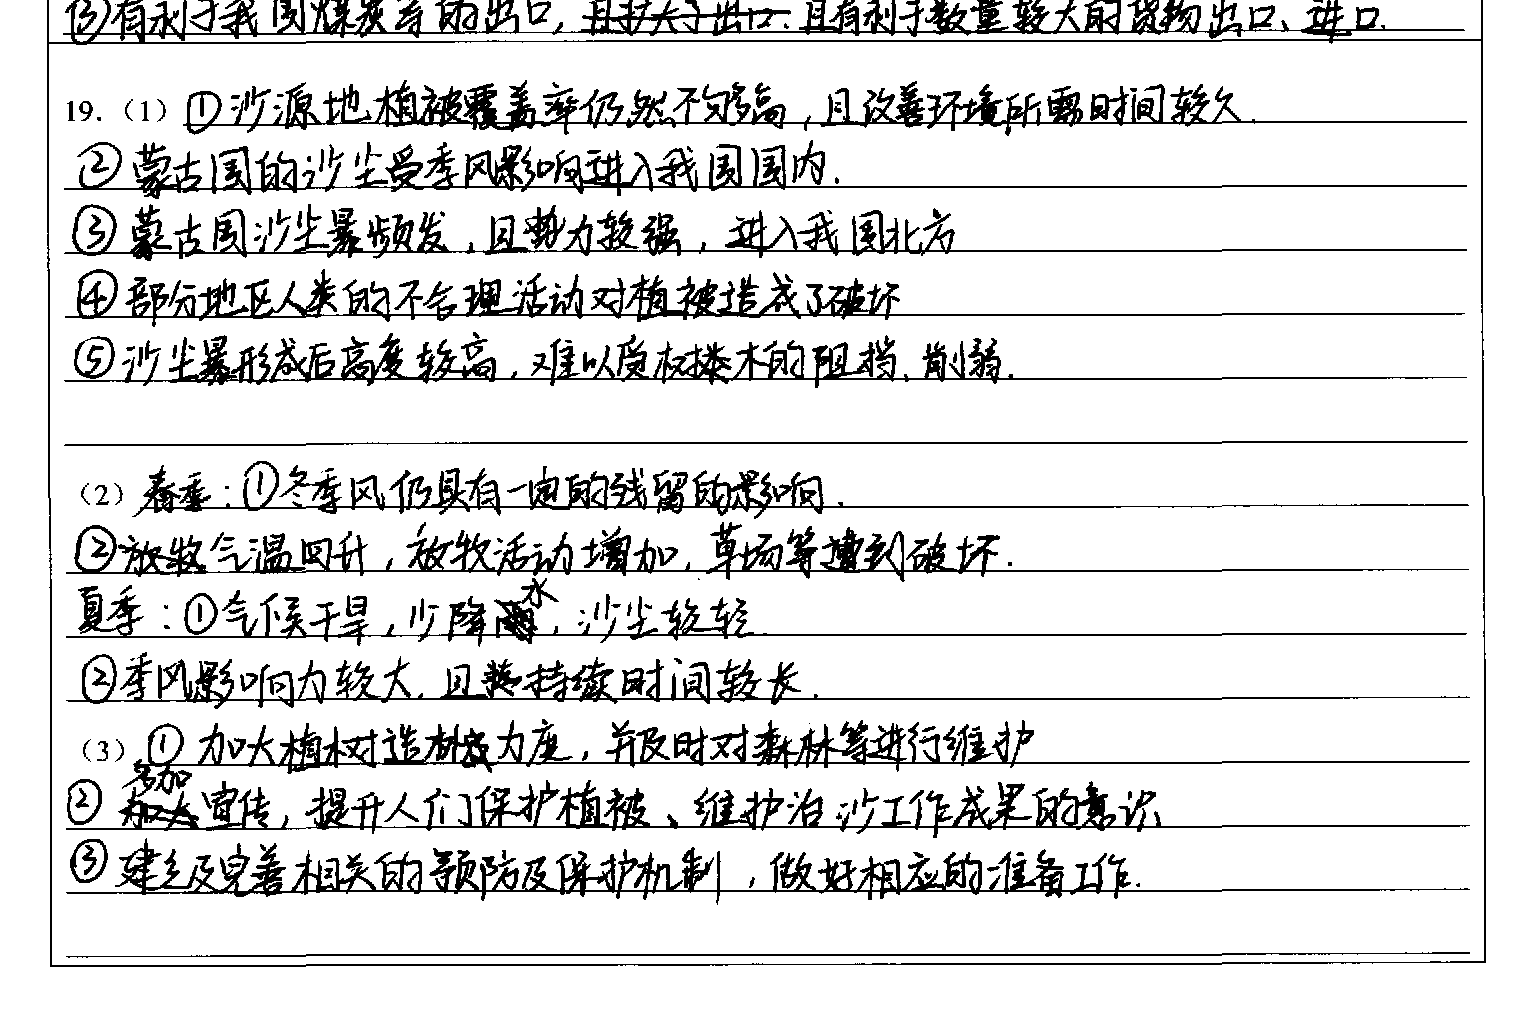 ③有利于我国煤炭等的出口，且扩大了出口.且有利于数量较大的货物出口、进口.
19.（1）①沙源地植被覆盖率仍然不够高，且改善环境所需时间较久.
②蒙古国的沙尘受季风影响进入我国国内.
③蒙古国沙尘暴频发，且势力较强，进入我国北方
④部分地区人类的不合理活动对植被造成了破坏
⑤沙尘暴形成后高度较高，难以受树木的阻挡、削弱.
（2）春季：①冬季风仍具有一定的残留的影响.
②放牧气温回升，放牧活动增加，草场等遭到破坏.
夏季：①气候干旱，少降水，沙尘较轻
②季风影响力较大.且持续时间较长.
（3）①加大植树造林力度，并及时对森林等进行维护
②多加宣传，提升人们保护植被、维护治沙工作成果的意识
③建立及完善相关的预防及保护机制，做好相应的准备工作.